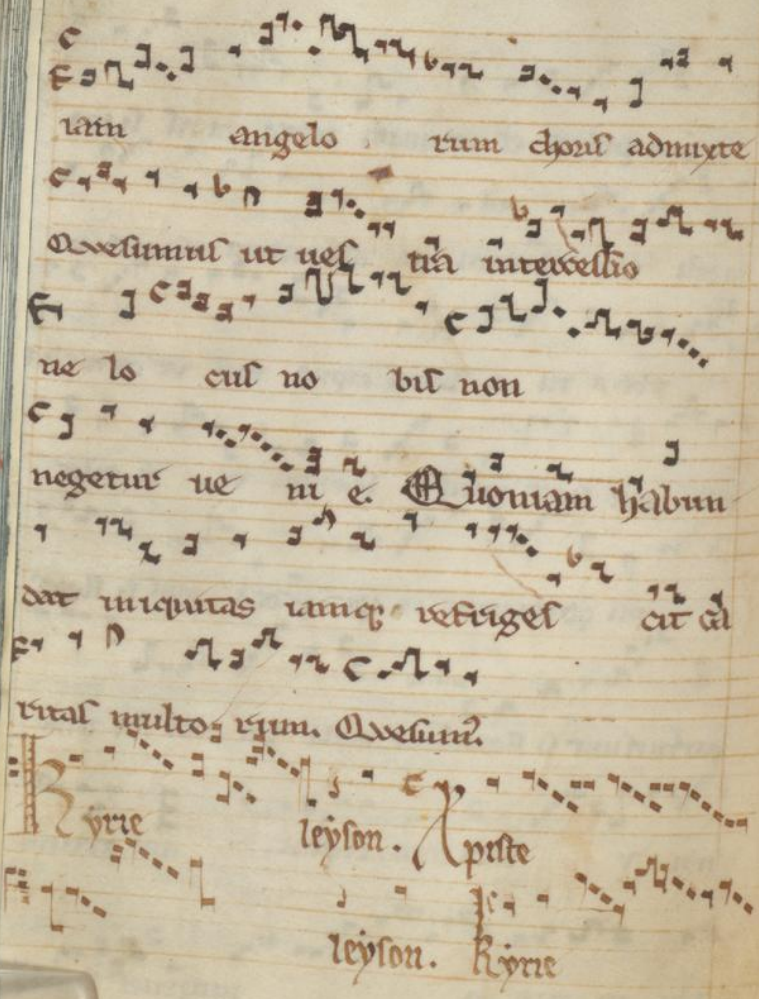 iam angelo rum choris admixte
Quesumus ut ues tra intercessio
ne lo cus no bis non
negetur ue ni e. Quoniam habun
dat iniquitas iamq; refriges cit ca
ritas multo rum. Quesum.
Kyrie leyson. Xpiste
leyson. Kyrie